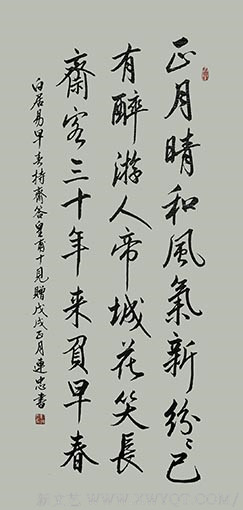 正月晴和風氣新紛〻已
有醉游人帝城花笑長
齋客三十年来負早春
白居易早春持齋答皇甫十見贈戊戌正月連忠書